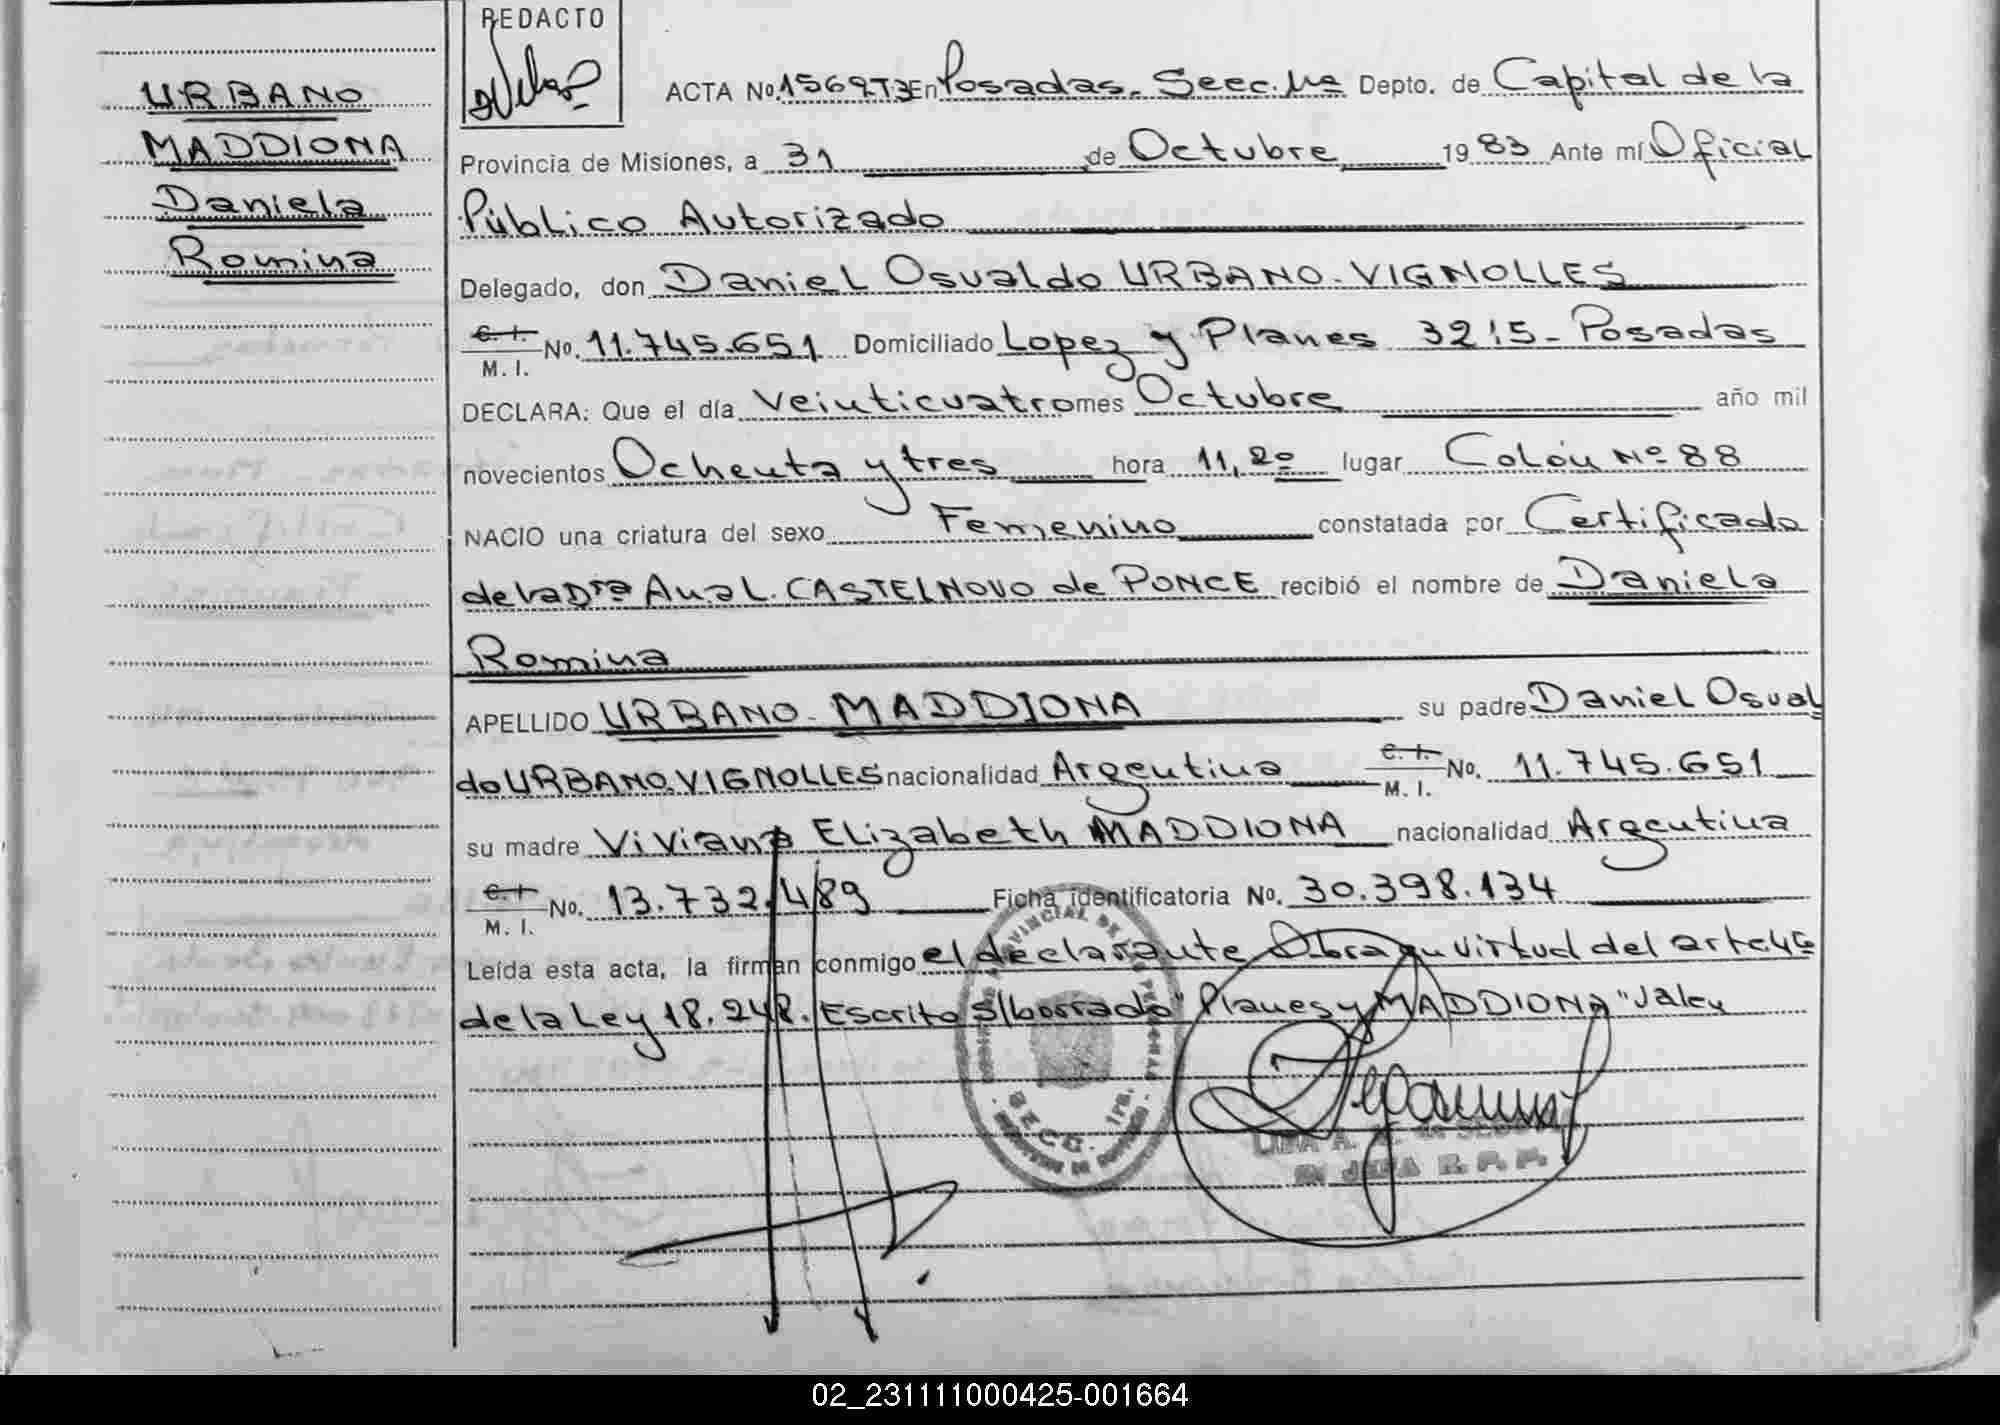 URBANO
MADDIONA
Daniela
Romina
REDACTO
ACTA No. 1569T3 En Posadas. Secc. 1ra Depto. de Capital de la
Provincia de Misiones, a 31 de Octubre 1983 Ante mí Oficial
Público Autorizado
Delegado, don Daniel Osvaldo URBANO. VIGNOLLES
C. I. M. I. No. 11.745.651 Domiciliado Lopez y Planes 3215 - Posadas
DECLARA: Que el día Veinticuatro mes Octubre año mil
novecientos Ochenta y tres hora 11,20 lugar Colón Nº 88
NACIO una criatura del sexo Femenino constatada por Certificado
de la Dra Ana L. CASTELNOVO de PONCE recibió el nombre de Daniela
Romina
APELLIDO URBANO MADDIONA su padre Daniel Osval
do URBANO. VIGNOLLES nacionalidad Argentina C. I. M. I. No. 11.745.651
su madre Viviana Elizabeth MADDIONA nacionalidad Argentina
C. I. M. I. No. 13.732.489 Ficha identificatoria No. 30.398.134
Leída esta acta, la firman conmigo el declarante Obra en virtud del art. 4º
de la Ley 18.248. Escrito s/borrado "Planes y MADDIONA" Valen
SECC. 1ra.
02_231111000425-001664